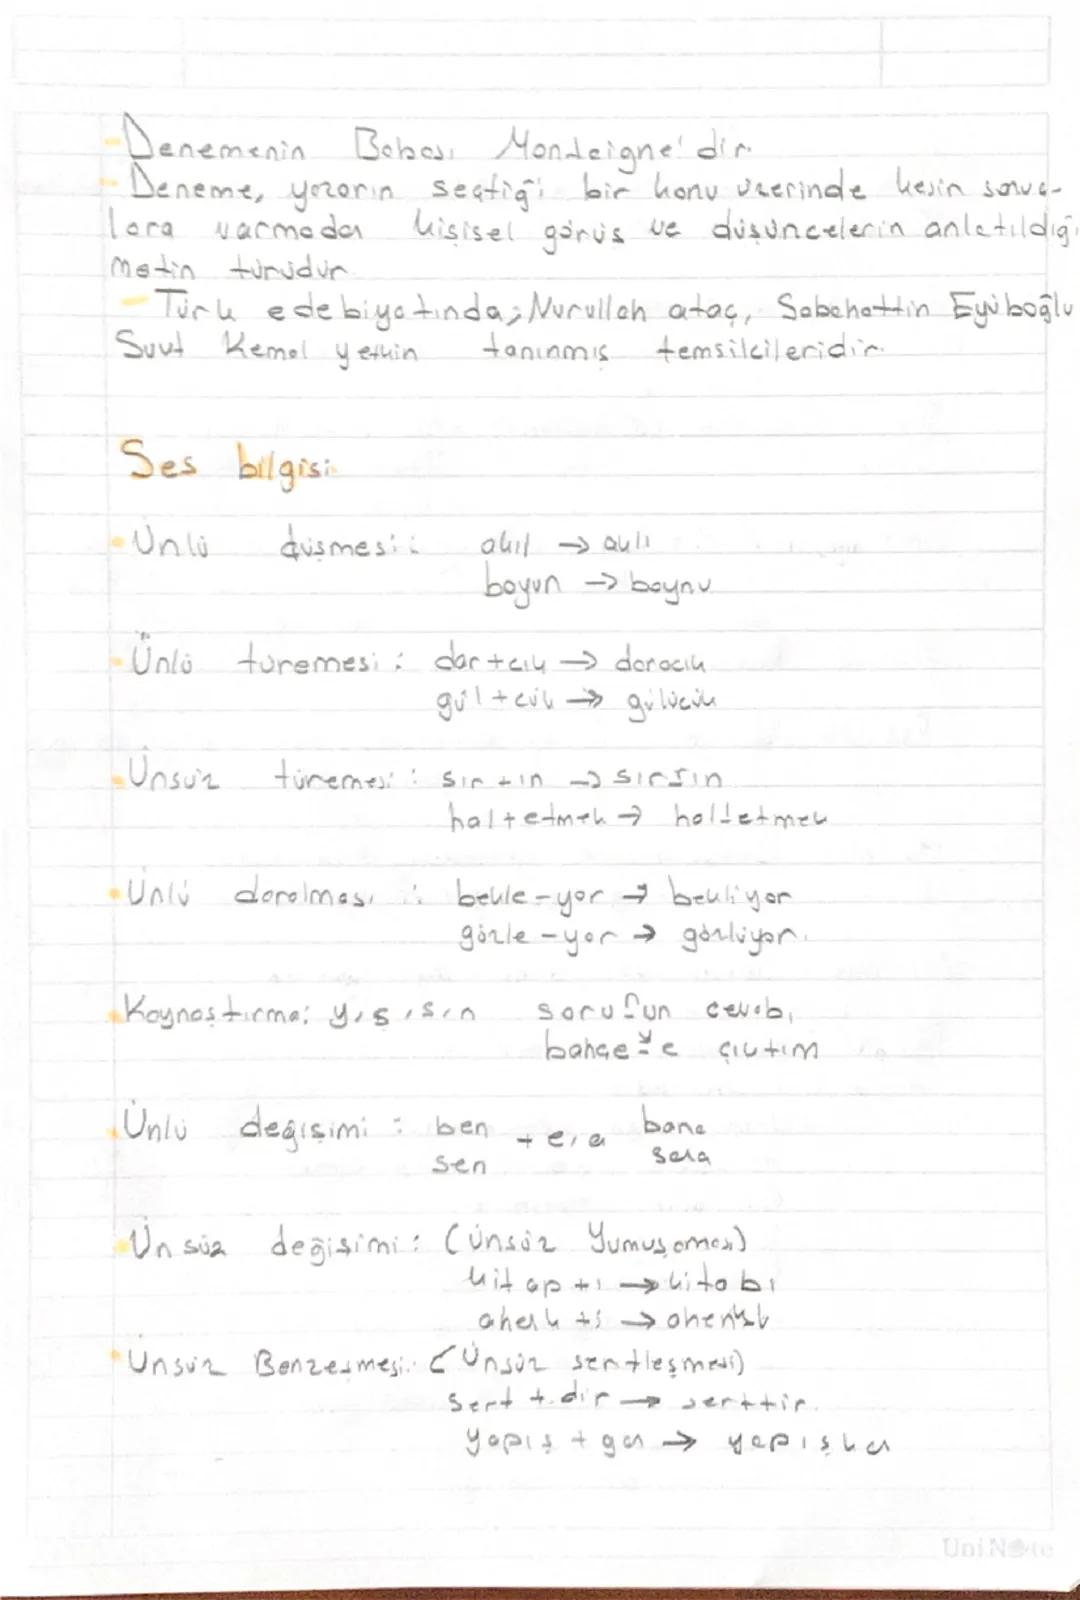 - Denemenin Babası Montaigne'dir.
- Deneme, yazarın seçtiği bir konu üzerinde kesin sonuç-
lara varmadan kişisel görüş ve düşüncelerin anlatıldığı
metin türüdür.
- Türk edebiyatında; Nurullah ataç, Sabahattin Eyüboğlu
Suut Kemal yetkin tanınmış temsilcileridir.
Ses bilgisi
• Ünlü düşmesi: akıl → aklı
boyun → boynu
• Ünlü türemesi: dar+cık → daracık
gül+cük → gülücük
• Ünsüz türemesi: sır+ın → sırrın
hal+etmek → halletmek
• Ünlü daralması: bekle-yor → bekliyor
gözle-yor → gözlüyor.
• Kaynaştırma: y, ş, s, n sorunun cevabı
bahçeye çıktım
• Ünlü değişimi: ben + e, a bana
sen sana
• Ünsüz değişimi: (Ünsüz Yumuşaması)
kitap +ı → kitabı
• Ünsüz Benzeşmesi: (Ünsüz sertleşmesi)
sert + dir → serttir.
yapış + gan → yapışkan
Uni Note